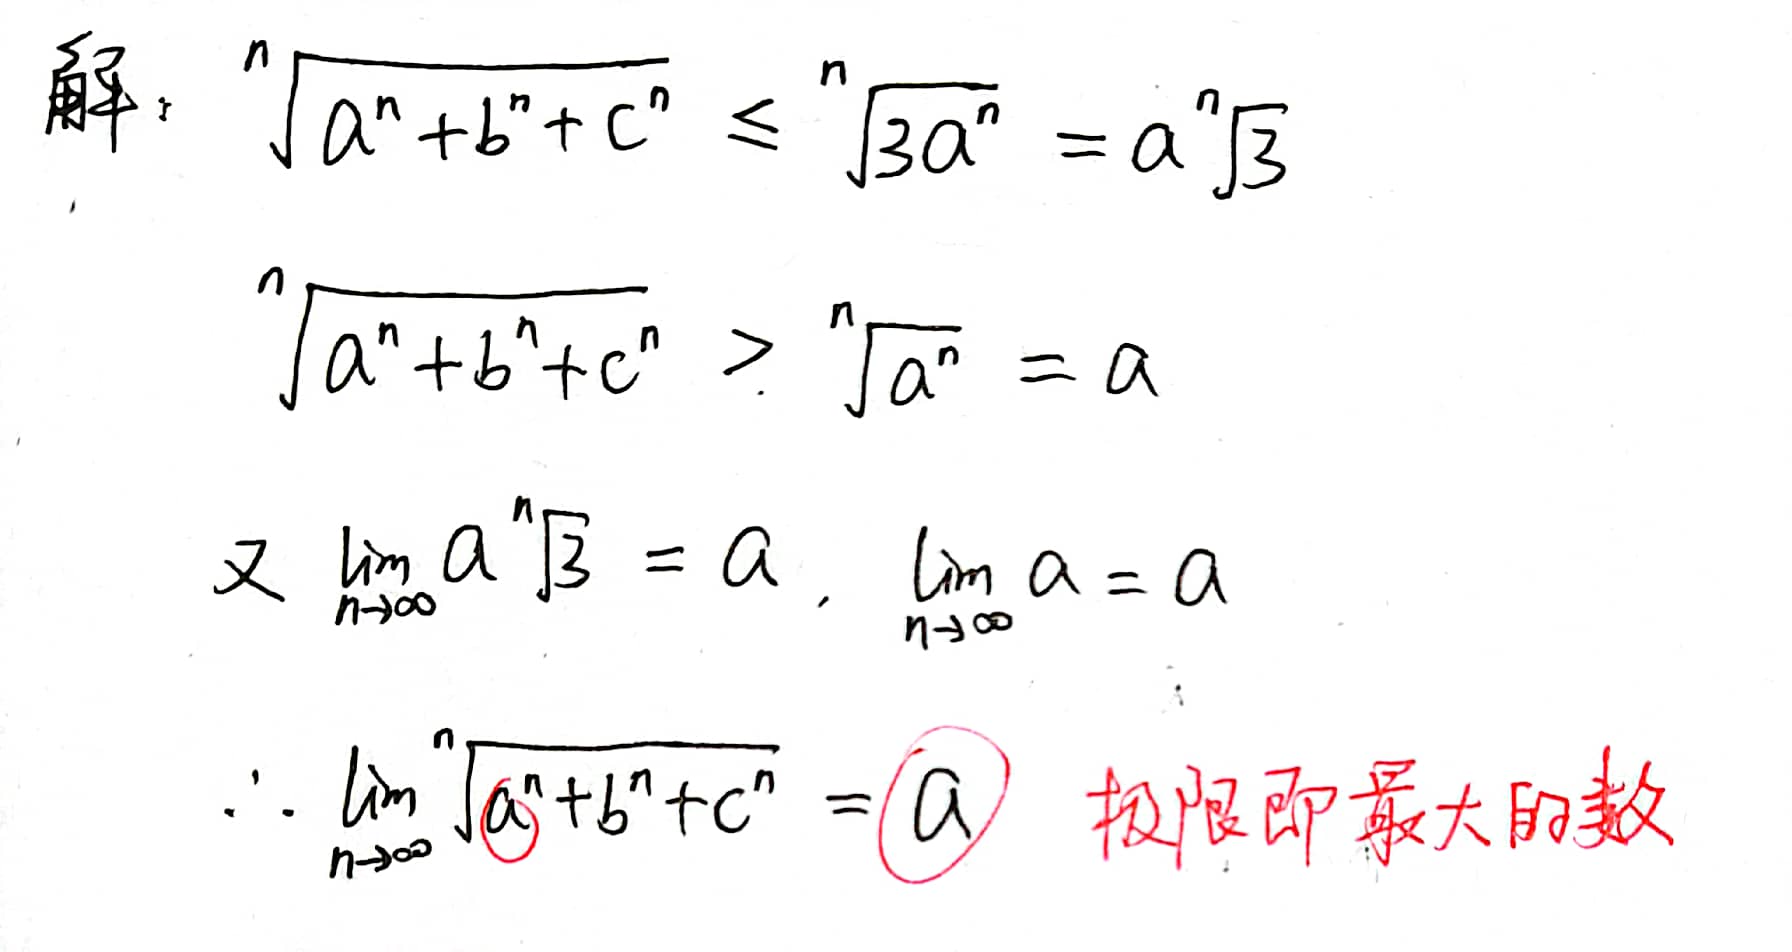 解: ⁿ√(aⁿ+bⁿ+cⁿ) ≤ ⁿ√(3aⁿ) = a ⁿ√3
ⁿ√(aⁿ+bⁿ+cⁿ) > ⁿ√(aⁿ) = a
又 lim n→∞ a ⁿ√3 = a, lim n→∞ a = a
∴ lim n→∞ ⁿ√(aⁿ+bⁿ+cⁿ) = a 极限即最大的数